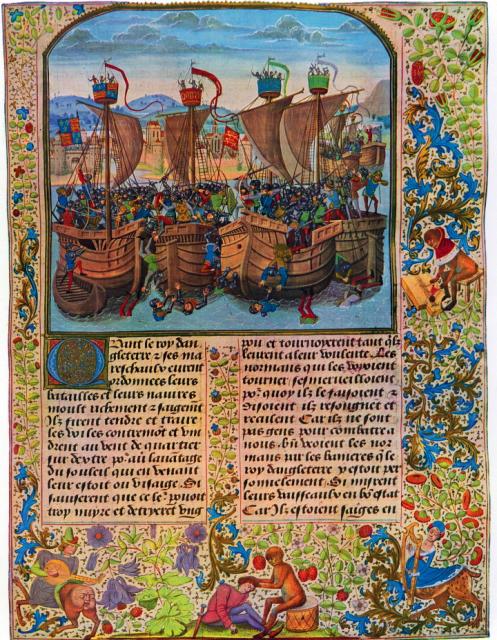 Quant le roy dan
gleterre & ses ma
reschaulx eurent
ordonnees leurs
batailles et leurs navires
moult richement & sagement
Ilz firent tendre et traire
les voilles contremont et vin
drent au vent de quartier
sur destre pour avoir lavantage
du souleil qui en venant
leur estoit ou visaige Si
saviserent que ce leur povoit
trop nuyre et detryerent ung
pou et tournoyerent tant quilz
leurent a leur voulente. Les
normans qui les veoyent
tourner sesmerveilloient
pour quoy ilz le faisoient &
disoient ilz resoingnent et
reculent Car ilz ne sont
pas gens pour combatre a
nous. bien veoient les nor
mans par les banieres que le
roy dangleterre y estoit per
sonnelement. Si mirent
leurs vaisseaulx en bon estat
Car Ilz estoient saiges en